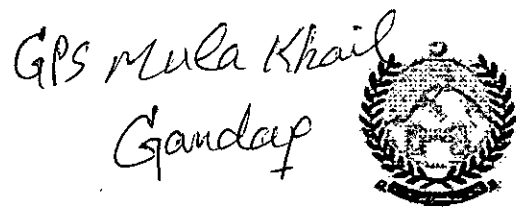 GPS Mula Khail
Gandap